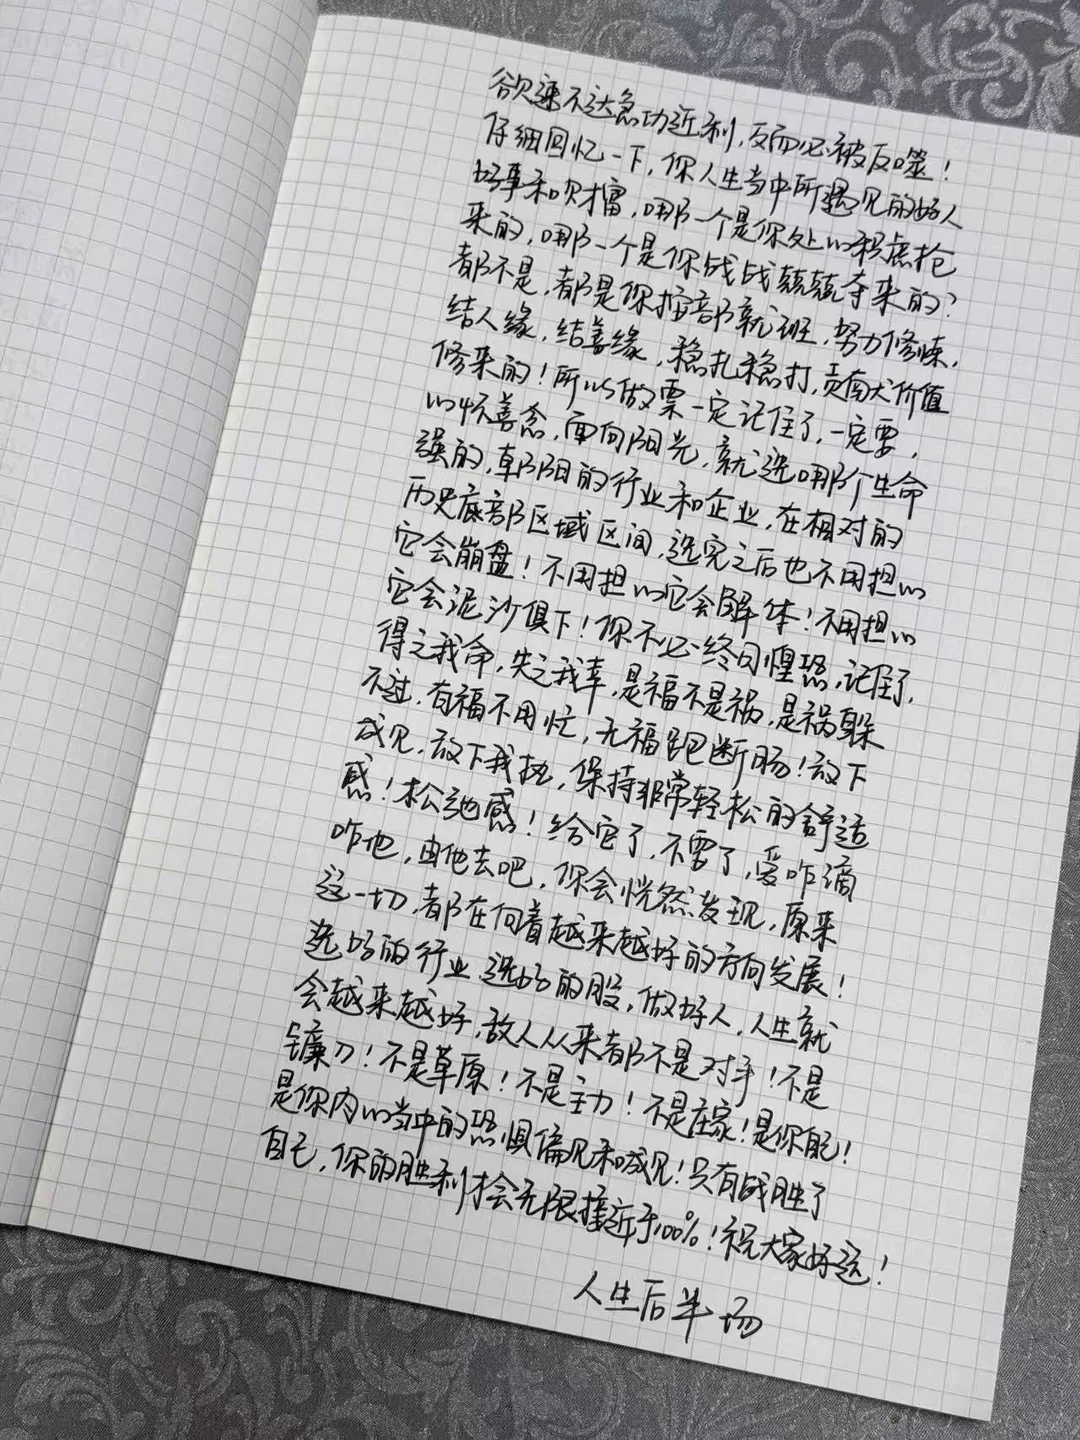 欲速不达急功近利,反而必被反噬!
仔细回忆一下,你人生当中所遇见的好人
好事和财富,哪一个是你处心积虑抢
来的,哪一个是你战战兢兢夺来的?
都不是,都是你按部就班,努力修炼,
结人缘,结善缘,稳扎稳打,贡献价值
修来的!所以做票一定记住了,一定要,
心怀善念,面向阳光,就选哪个生命
强的,朝阳的行业和企业,在相对的
历史底部区域区间,选完之后也不用担心
它会崩盘!不用担心它会解体!不用担心
它会泥沙俱下!你不必终日惶恐,记住了,
得之我命,失之我幸,是福不是祸,是祸躲
不过,有福不用忙,无福跑断肠!放下
成见,放下我执,保持非常轻松的舒适
感!松弛感!给它了,不要了,爱咋滴
咋地,由他去吧,你会恍然发现,原来
这一切,都在向着越来越好的方向发展!
选好的行业,选好的股,做好人,人生就
会越来越好,敌人从来都不是对手!不是
镰刀!不是草原!不是主力!不是庄家!是你自己!
是你内心当中的恐惧偏见和成见!只有战胜了
自己,你的胜利才会无限接近于100%!祝大家好运!
人生后半场